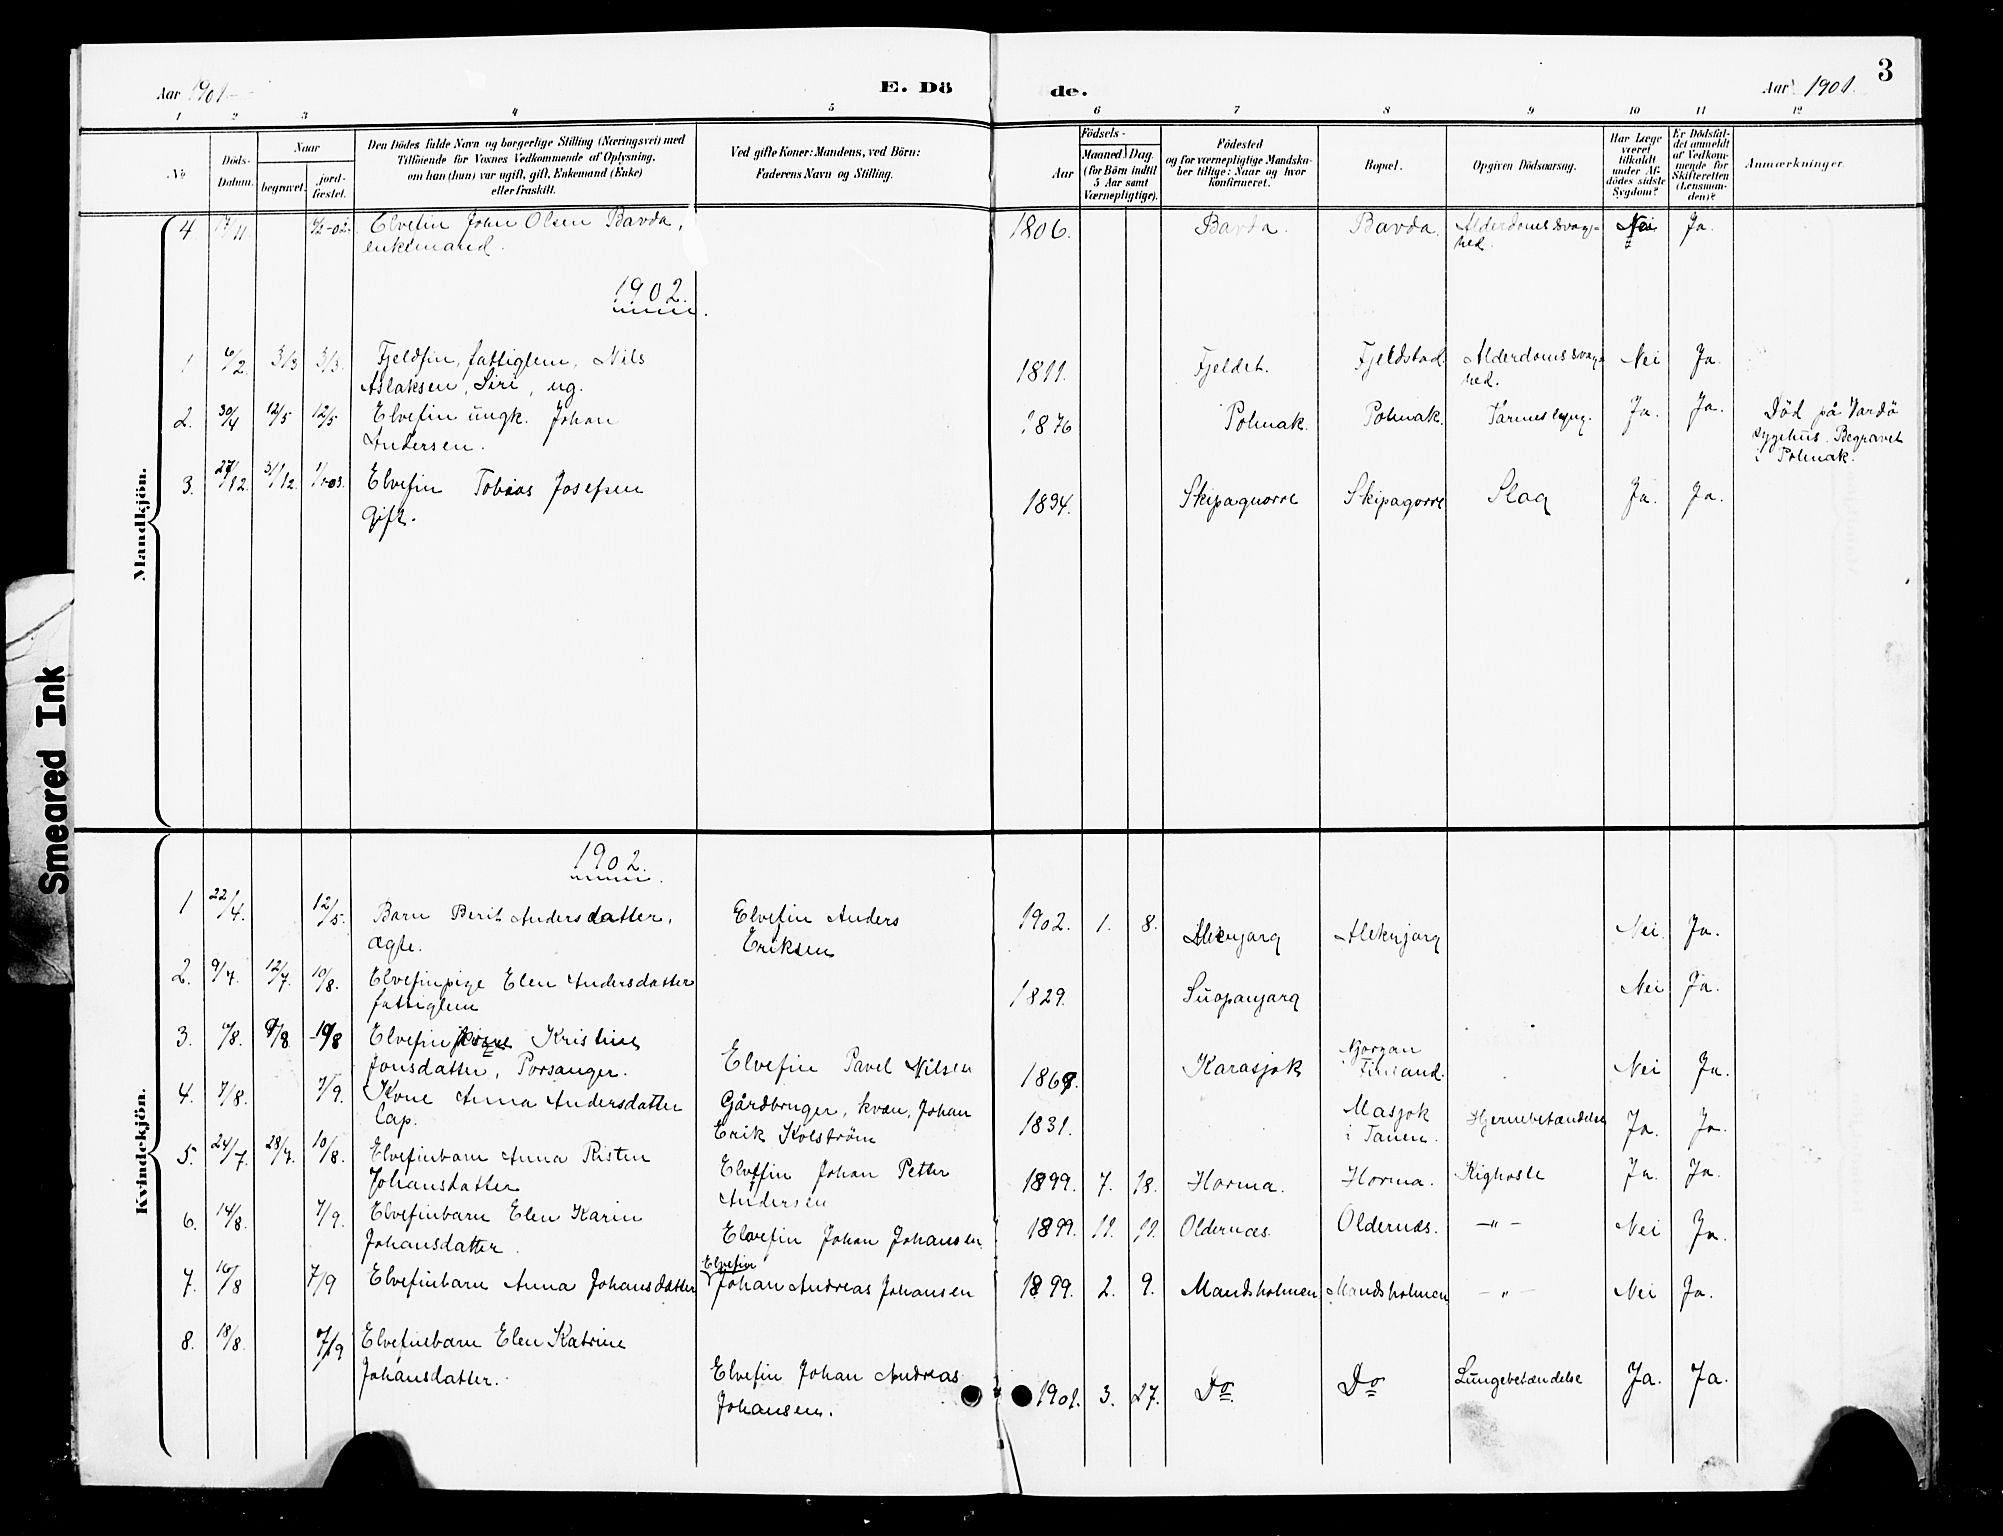 Aar 1901
E. Dö
de.
Aar 1901.
3
1 2 3 4 5 6 7 8 9 10 11 12
No
Döds-
Datum.
Naar
begravet.
jord-
fæstet.
Den Dödes fulde Navn og borgerlige Stilling (Næringsvei) med
Tilföiende for Voxnes Vedkommende af Oplysning,
om han (hun) var ugift, gift, Enkemand (Enke)
eller fraskilt.
Ved gifte Koner: Mandens, ved Börn:
Faderens Navn og Stilling.
Aar
Födsels-
Maaned
Dag.
(for Börn indtil
5 Aar samt
Værnepligtige).
Födested
og for værnepligtige Mandska-
ber tillige: Naar og hvor
konfirmeret.
Bopæl.
Opgiven Dödsaarsag.
Har Læge
været
tilkaldt
under Af-
dödes sidste
Sygdom?
Er Dödsfal-
det anmeldt
af Vedkom-
mende for
Skifteretten
(Lensman-
den)?
Anmærkninger.
Mandkjön.
4 /11 -02. Elvefin John Olsen Bavda, 1806. Bavda. Bavda. Alderdomssvag- Nei Ja.
enkemand. hed.
1902.
1 6/2 3/3 3/3. Fjeldfin, fattiglem, Nils 1811. Fjeldet. Fjeldstad. Alderdomssvag- Nei Ja.
Aslaksen, Siri, ug. hed.
2. 30/4 12/5 12/5 Elvefin ungk. Johan 1876 Polmak. Polmak. Ja. Ja. Död på Vardö
Andersen. sygehus. Begravet
i Polmak.
3. 27/12 31/12. Elvefin Tobias Josefsen 1834. Skipaguorre Skipagorre Slag Ja. Ja.
Gift.
Kvindekjön.
1902.
1 22/4. 12/5. Barn Berit Andersdatter, Elvefin Anders 1902. 1. 8. Aleknjarg Nei. Ja.
ægte. Eriksen
2. 9/7. 12/7. 10/8. Elvefinpige Elen Andersdatter 1829. Suopanjarg Nei Ja.
fattiglem
3. 6/8. 9/8 10/8 Elvefin Kristine Elvefin Pavel Nilsen Karasjok Njorgan Nei Ja.
Jonsdatter, Porsanger. Finland.
4. 7/8. 7/9. Kone Anna Andersdatter Gårdbruger, kvæn, Johan 1831. Masjok Hjernebetændelse Ja. Ja.
lap. Erik Kolström i Tanen.
5. 24/7. 28/7. 10/8. Elvefinbarn Anna Risten Elvefin Johan Petter 1899. 7. 18. Horma. Horma. Kighoste Ja. Ja.
Johansdatter Andersen
6. 14/8. 7/9. Elvefinbarn Elen Karin Elvefin Johan Johansen 1899. 11. 11. Oldernæs. Oldernæs. -"- Nei Ja.
Johansdatter.
7. 16/8 7/9 Elvefinbarn Anna Johansdatter Elvefin Johan Andreas Johansen 1899. 2. 9. Mandsholmen Mandsholmen -"- Nei Ja.
8. 18/8. 7/9 Elvefinbarn Elen Katrine Elvefin Johan Andreas 1901. 3. 27. Do. Do Lungebetændelse Ja. Ja.
Johansdatter. Johansen.
Smeared Ink